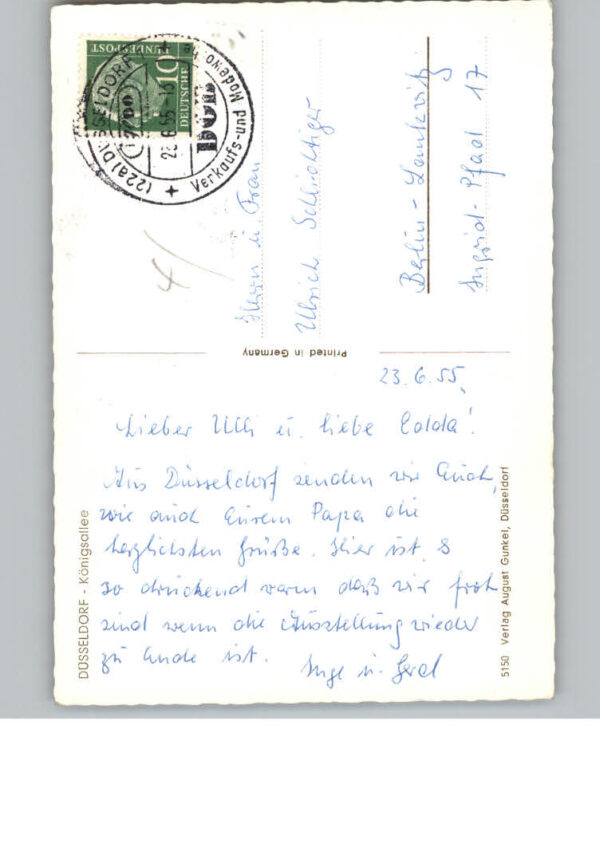 DEUTSCHE
BUNDESPOST
10
(22a) DÜSSELDORF
Verkaufs- und Modewoche
Herrn u Frau
Ulrich Schlichtiger
Berlin-Lankwitz
Ingrid-Pfad 17
Printed in Germany
23.6.55.
Lieber Ulli u. liebe Edda!
Aus Düsseldorf senden wir Euch,
wie auch Eurem Papa die
herzlichsten Grüße. Hier ist es
so drückend warm daß wir froh
sind wenn die Ausstellung wieder
zu Ende ist.
Inge u. Gerd
DÜSSELDORF - Königsallee
5150 Verlag August Gunkel, Düsseldorf